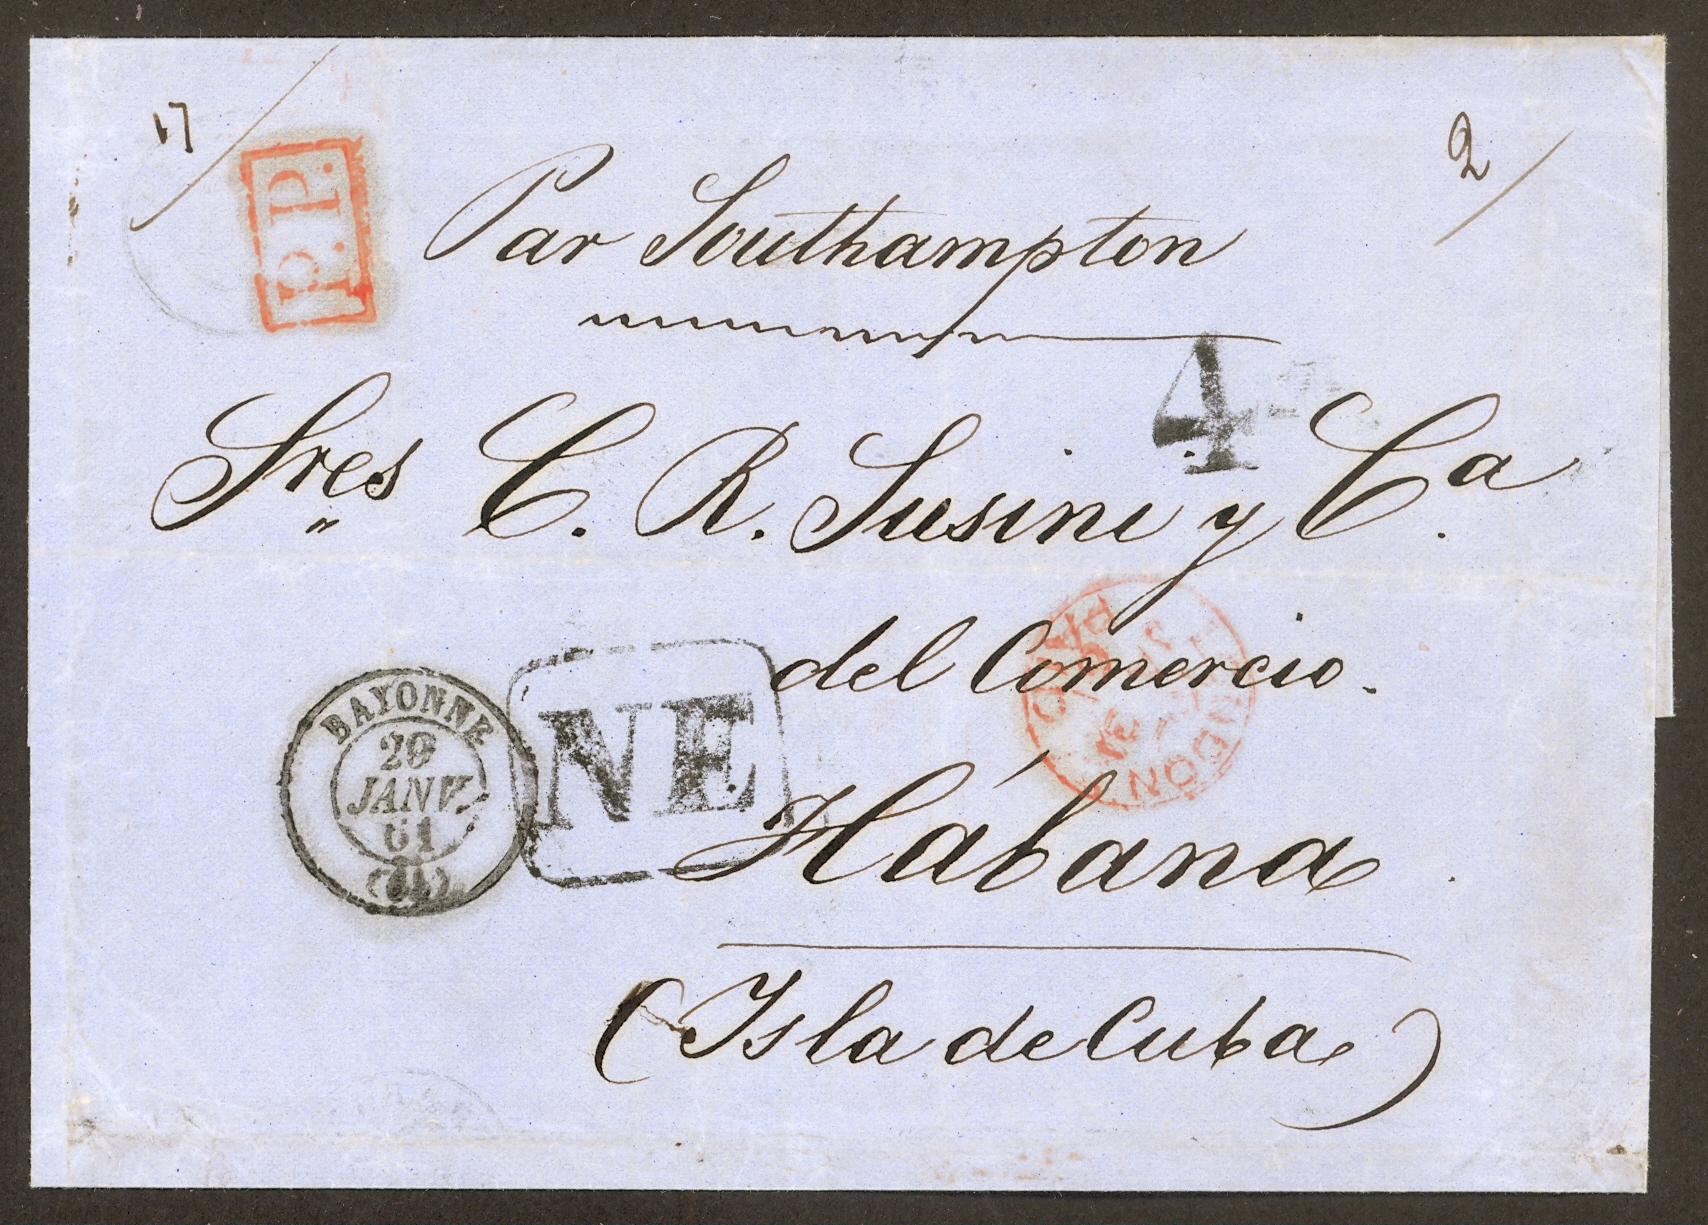 17
P.P.
2
Par Southampton
4
Sres C. R. Susini y Ca.
del Comercio.
LONDON
PAID
BAYONNE
JANV.
61
(64)
NE
Hábana
(Isla de Cuba)